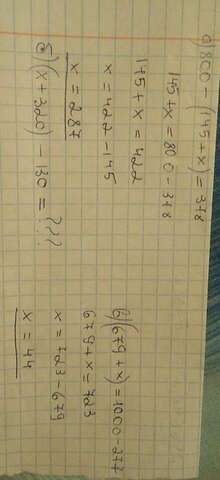 а) 800 - (145+x) = 378
145+x = 800 - 378
145+x = 422
x = 422 - 145
x = 287
б) (x+320) - 130 = ???
в) (679+x) = 1000 - 277
679+x = 723
x = 723 - 679
x = 44